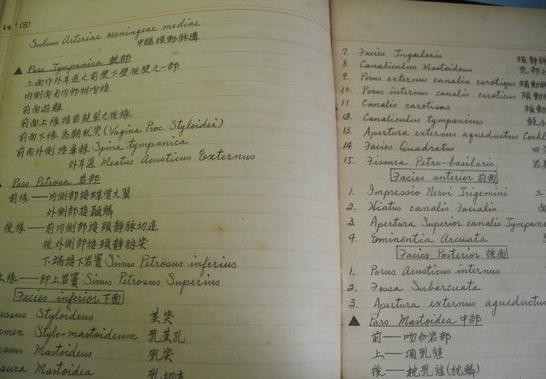 Sulcus Arteriae meningeae mediae
中腦膜動脈溝
▲ Pars Tympanica 鼓部
上面作外耳道之前壁下壁後壁之一部
前面遊離
前面下緣為鞘狀突 (Vagina Proc. Styloidei)
前面外側接棘 Spina tympanica
外耳道 Meatus Acusticus Externus
▲ Pars Petrosa 岩部
前緣——內側部接蝶骨大翼
外側部接顳鱗
後緣——前內側部接頸靜脈切迹
後外側部接頸靜脈突
下端接下岩竇 Sinus Petrosus inferius
上緣——即上岩竇 Sinus Petrosus Superius
Facies inferior 下面
essus Styloideus 莖突
amen Stylo-mastoideum 乳莖孔
essus Mastoideus 乳突
sura Mastoidea 乳切
7. Facies Jugularis 頸靜
8. Canaliculus Mastoideus 乳部
9. Porus externus canalis carotiqus 頸動
10. Porus internus canalis caroticus 頸動
11. Canalis caroticus 頸動
12. Canaliculus tympanicus 鼓小
13. Apertura externus aqueductus Cochl
14. Facies Quadratus 四
15. Fissura Petro-basilaris 岩
Facies anterior 前面
1. Impressio Nervi Trigemini 三
2. Hiatus canalis Facialis 面
3. Apertura Superior canalis Tympan
4. Eminentia Arcuata
Facies Posterior 後面
1. Porus Acusticus internus
2. Fossa Subarcuata
3. Apertura externus aqueductu
▲ Pars Mastoidea 乳部
前——吻合岩部
上——頂乳縫
後——枕乳縫(枕鱗)